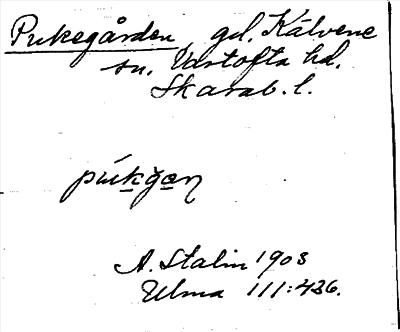 Pukegården, gd. Kälvene
sn. Vartofta hd.
Skarab. l.
pưkgạn
A. Stalin 1903
Ulma 111:436.